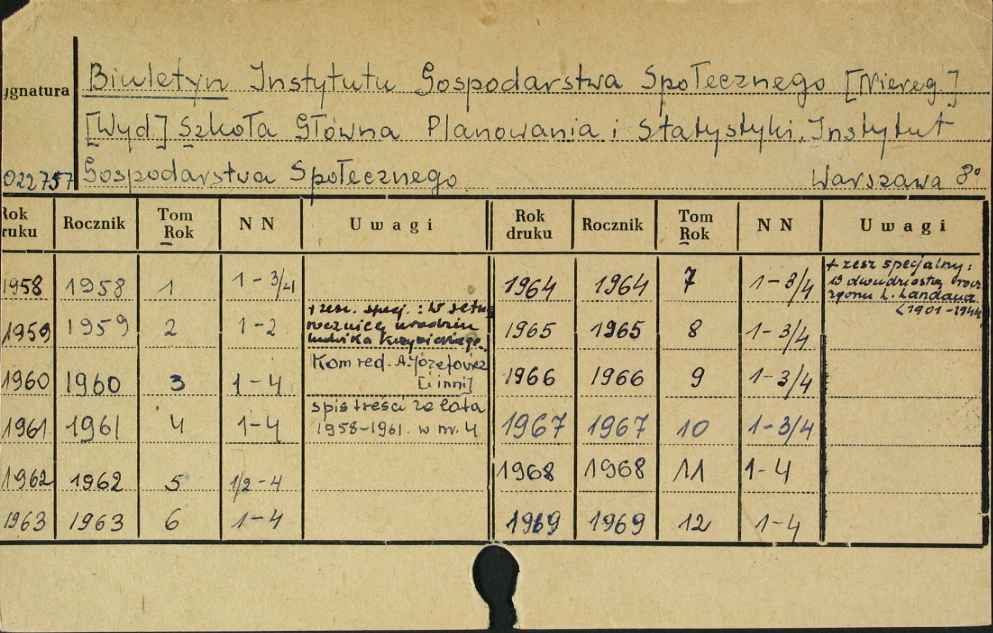 Biuletyn Instytutu Gospodarstwa Społecznego [Niereg.]
ygnatura
[Wyd] Szkoła Główna Planowania i Statystyki. Instytut
022757 Gospodarstwa Społecznego Warszawa 8°
Rok druku Rocznik Tom Rok NN Uwagi Rok druku Rocznik Tom Rok NN Uwagi
1958 1958 1 1-3/4 1964 1964 7 1-3/4 + zesz specjalny: W dwudziestą rocz zgonu L. Landaua (1901-1944
1959 1959 2 1-2 + zesz. specj.: W setną rocznicę urodzin Ludwika Krzywickiego. 1965 1965 8 1-3/4
1960 1960 3 1-4 Kom red. A. Józefowicz [i inni] 1966 1966 9 1-3/4
1961 1961 4 1-4 spis treści za lata 1958-1961. w nr. 4 1967 1967 10 1-3/4
1962 1962 5 1/2-4 1968 1968 11 1-4
1963 1963 6 1-4 1969 1969 12 1-4